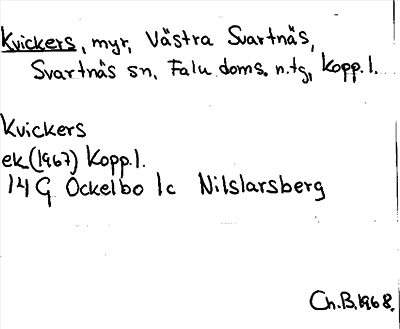 Kvickers, myr, Västra Svartnäs,
Svartnäs sn, Falu doms. n. tg, Kopp. l.
Kvickers
ek. (1967) Kopp. l.
14 G Ockelbo 1c Nilslarsberg
Ch. B. 1968.